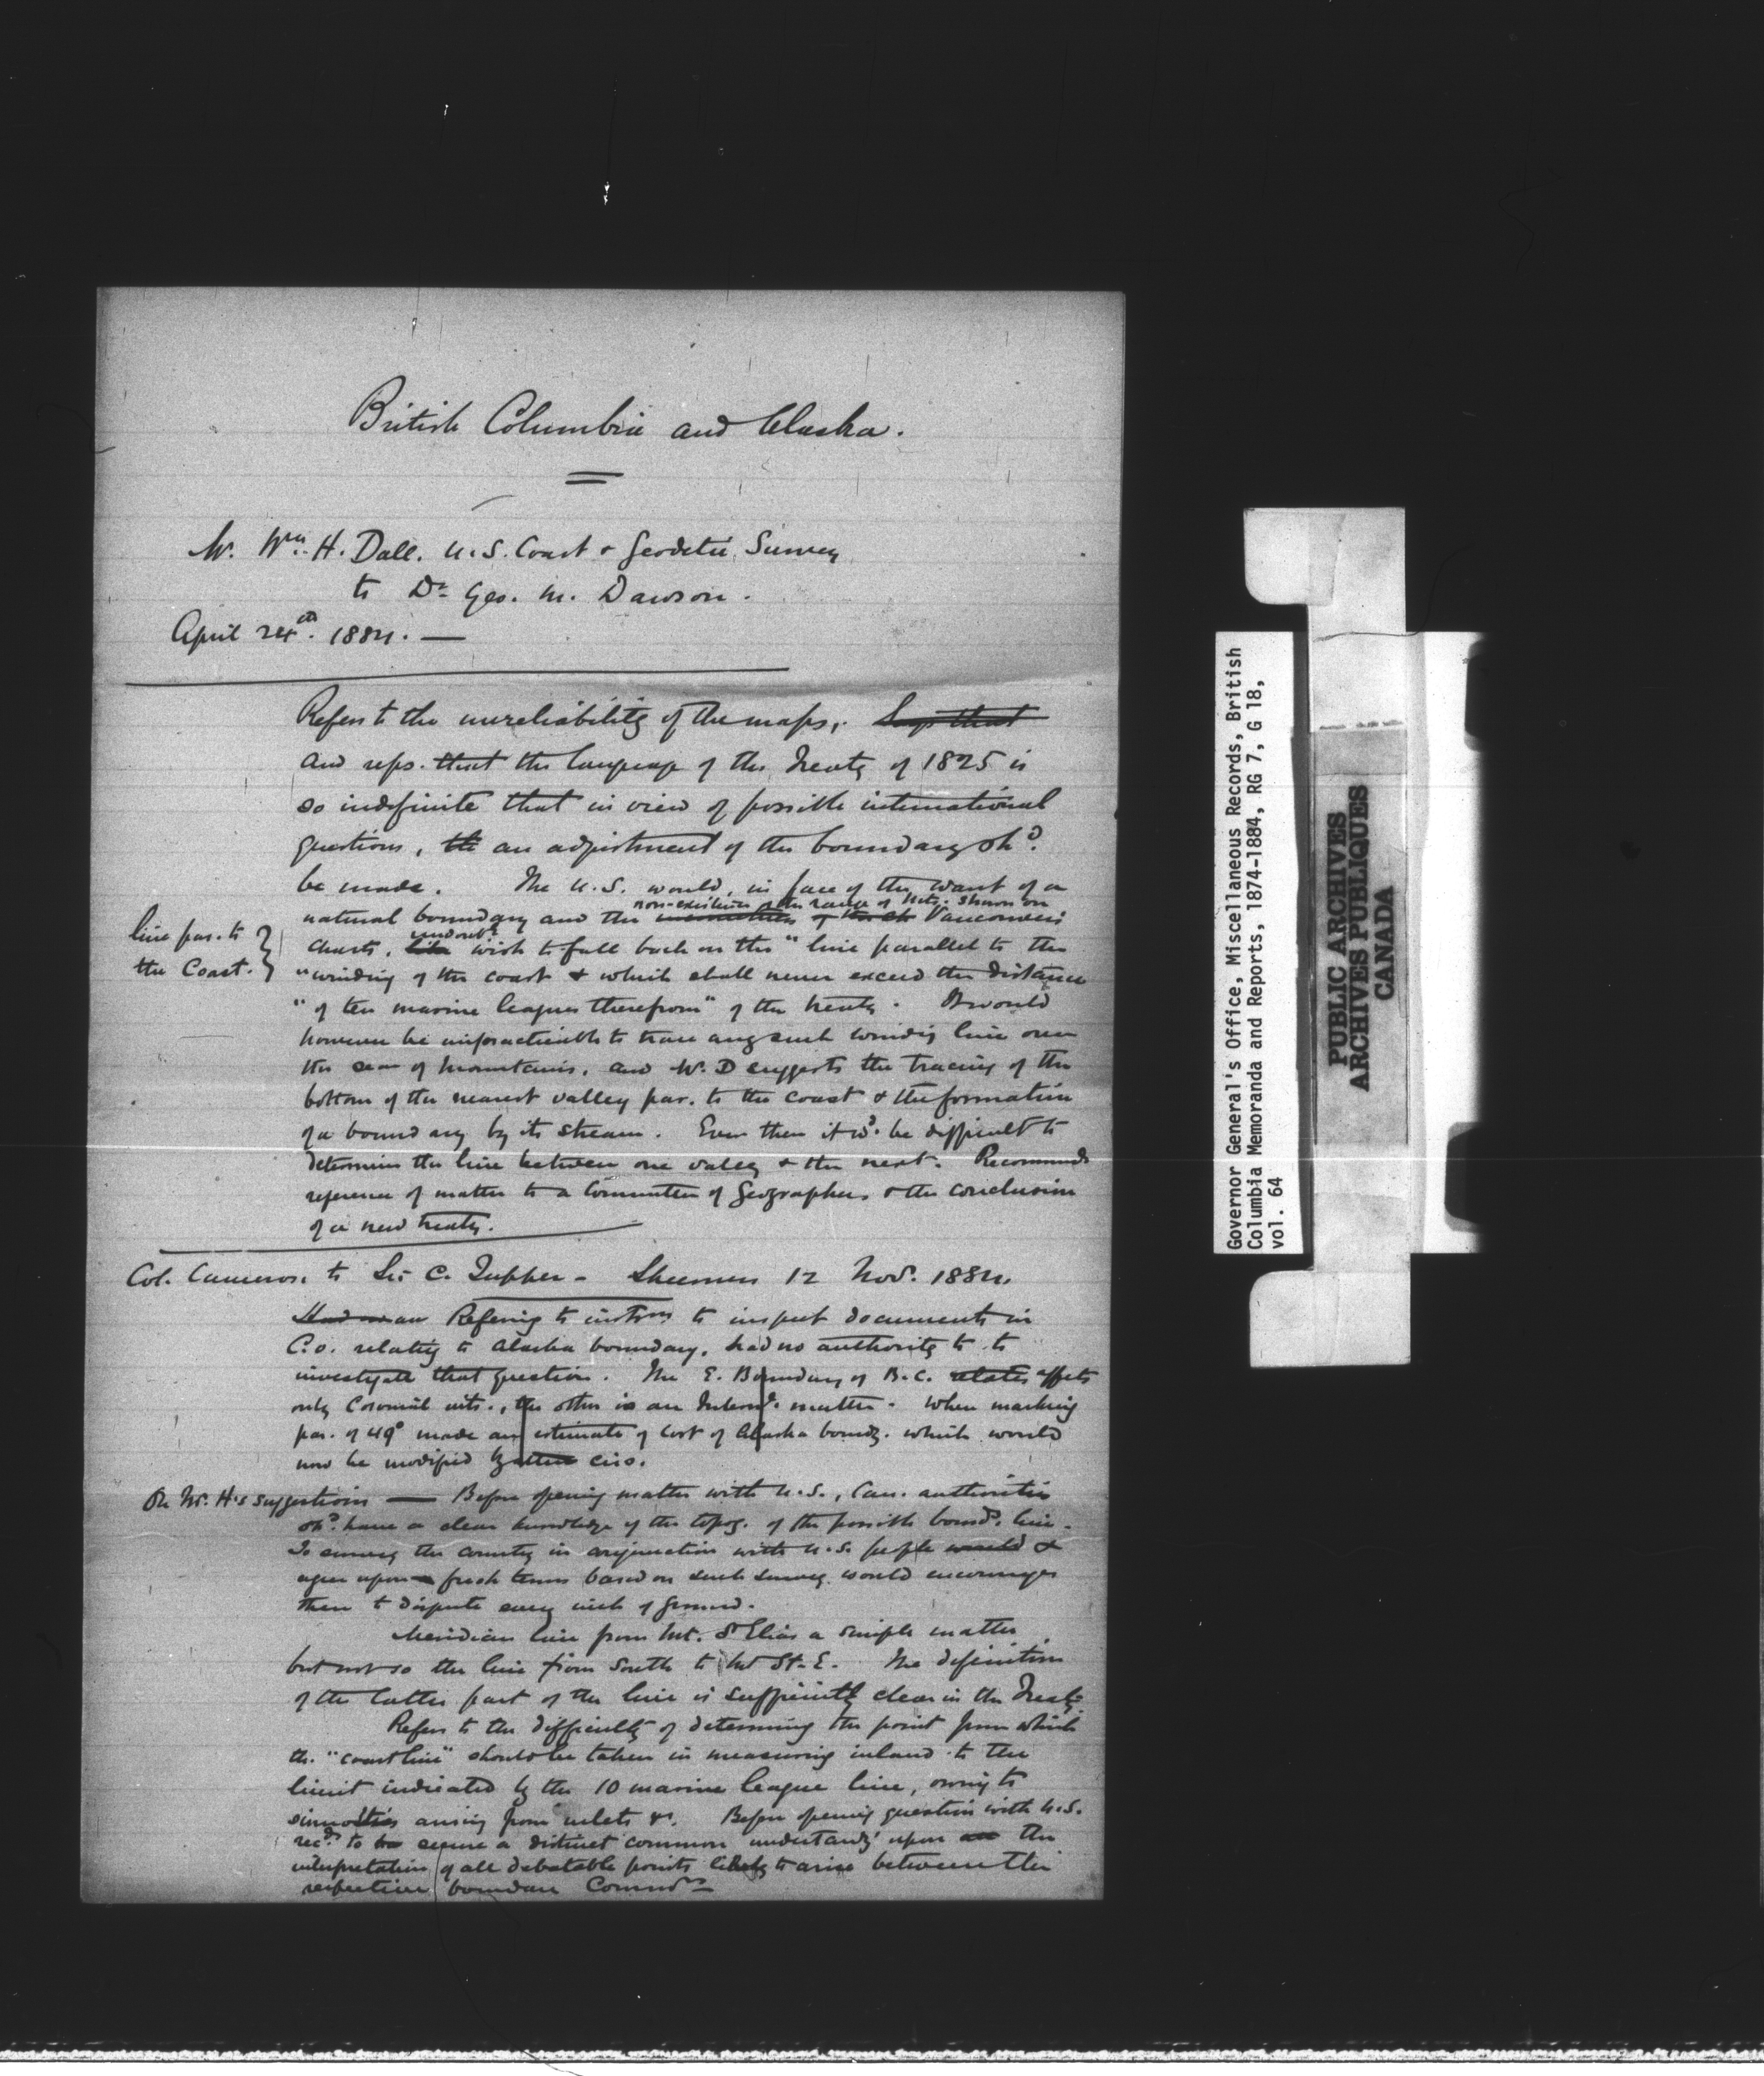 British Columbia and Alaska.
Mr. Wm. H. Dall. U.S. Coast & Geodetic Survey
to Dr. Geo. M. Dawson.
April 24th. 1884. —
Refers to the unreliability of the maps, Says that
and reps. that the language of the Treaty of 1825 is
so indefinite that in view of possible international
questions, th an adjustment of the boundary shd.
be made. The U.S. would, in face of the want of a
non-existence of the range of Mts. shown on
natural boundary and the of the Vancouver's
undoubt.
charts, wish to fall back on the "line parallel to the
line par. to
the Coast.
"winding of the coast & which shall never exceed the distance
"of ten marine leagues therefrom" of the treaty. It would
however be impracticable to trace any such winding line over
the sea of mountains, and Mr. D suggests the tracing of the
bottom of the nearest valley par. to the coast & the formation
of a boundary by its stream. Even then it wd. be difficult to
determine the line between one valley & the next. Recommends
reference of matter to a Committee of Geographers & the conclusion
of a new treaty.
Col. Cameron to Sir C. Tupper - 12 Nov. 1884.
Referring to instrns. to inspect documents in
C.O. relating to Alaska boundary, had no authority to to
investigate that question. The E. Boundary of B.C. relates affects
only Colonial ints., the other is an Internl. matter. When marking
par. of 49° made an estimate of cost of Alaska boundy. which would
now be modified by circs.
On Mr. H's suggestions — Before opening matter with U.S., Can. authorities
shd. have a clear knowledge of the topog. of the possible boundy. line.
To survey the country in conjunction with U.S. people would &
agree upon fresh terms based on such survey would encourage
them to dispute every inch of ground.
Meridian line from Mt. St Elias a simple matter
but not so the line from South to Mt St. E. The definition
of the latter part of the line is sufficiently clear in the Treaty.
Refers to the difficulty of determining the point from which
the "coast line" should be taken in measuring inland to the
limit indicated by the 10 marine league line, owing to
sinuosities arising from inlets &c. Before opening question with U.S.
recd. to be secure a distinct common understandg. upon the
interpretation of all debatable points likely to arise between the
respective boundary Commrs.
Governor General's Office, Miscellaneous Records, British
Columbia Memoranda and Reports, 1874-1884, RG 7, G 18,
vol. 64
PUBLIC ARCHIVES
ARCHIVES PUBLIQUES
CANADA